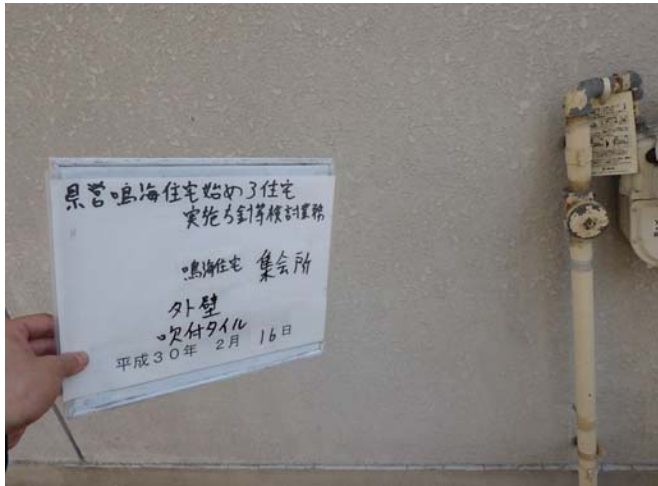 県営鳴海住宅始め3住宅
実施方針等検討業務
鳴海住宅 集会所
外壁
吹付タイル
平成30年 2月 16日